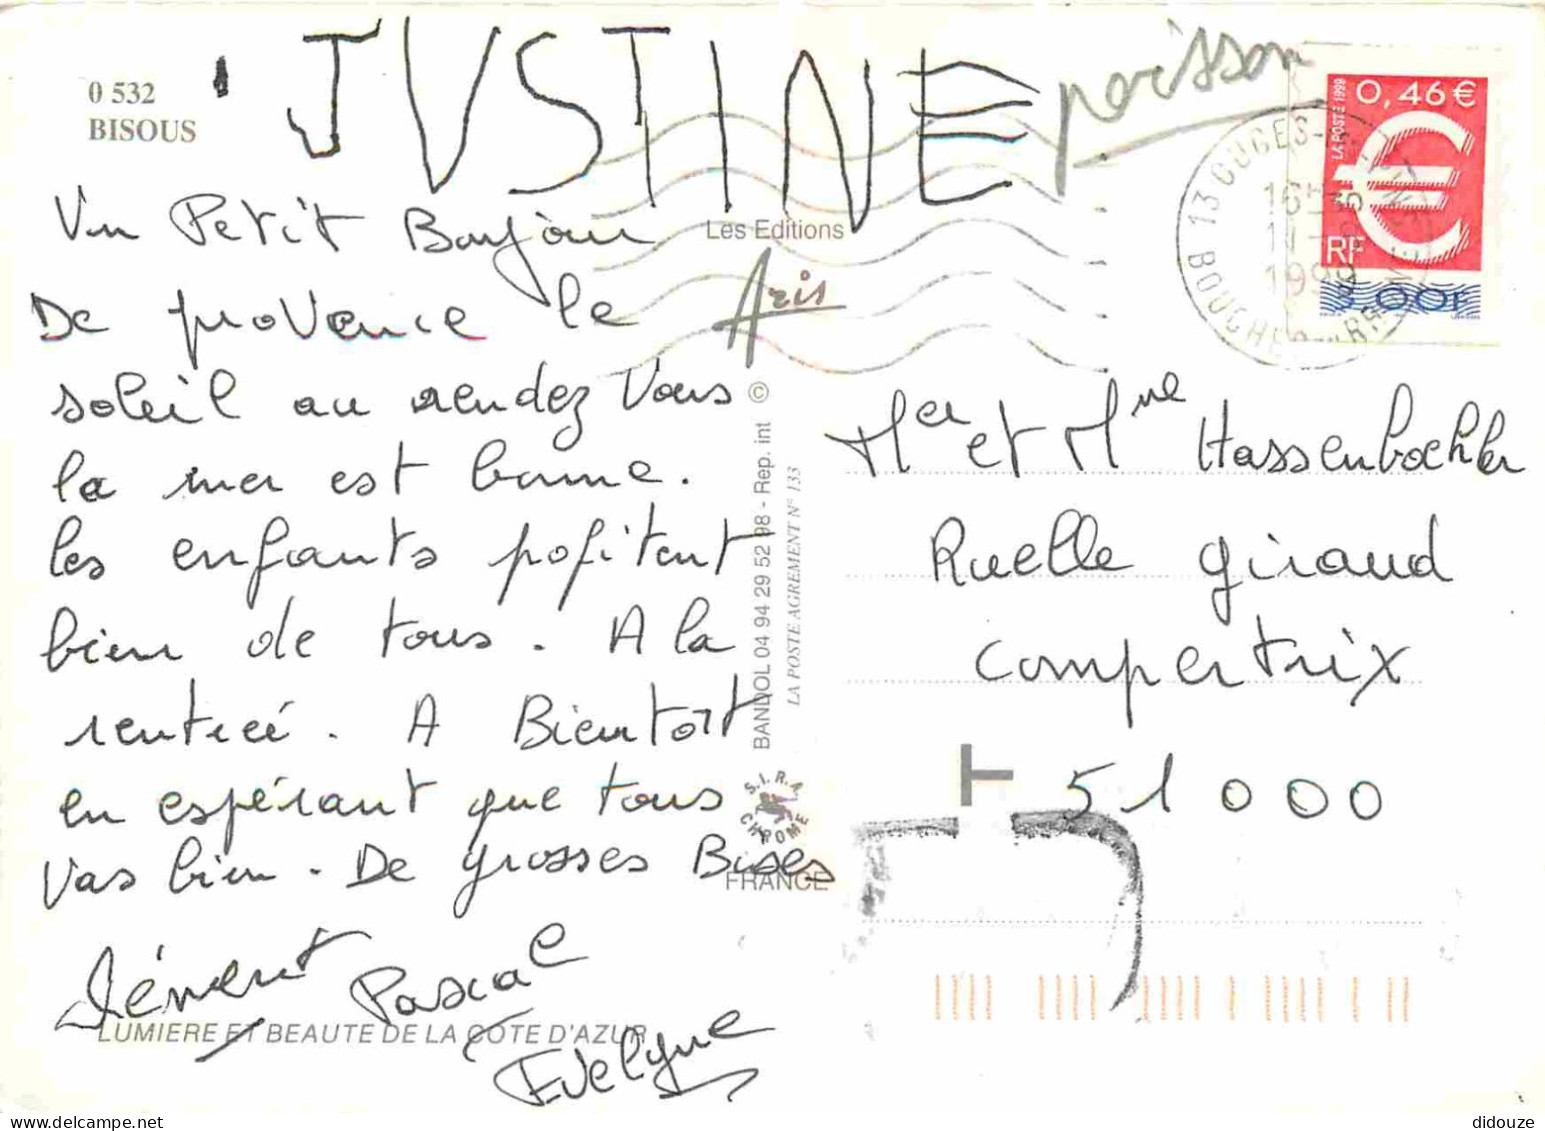 0 532
BISOUS
JUSTINE
poisson
Un Petit Bonjour
De provence le
soleil au rendez Vous
la mer est bonne.
les enfants pofitent
bien de tous. A la
rentreé. A Bientort
en espérant que tous
Vas bien. De grosses Bises
Pascale
Evelyne
LUMIERE ET BEAUTE DE LA COTE D'AZUR
Les Editions
Aris
BANDOL 04 94 29 52 98 - Rep. int ©
LA POSTE AGREMENT N° 133
S.I.R.A
CHROME
FRANCE
0,46 €
LA POSTE 1999
RF
3,00F
13 CUGES-
BOUCHES
1999
Mer et Mme Hassenboehler
Ruelle Giraud
Compertrix
51000
T
didouze